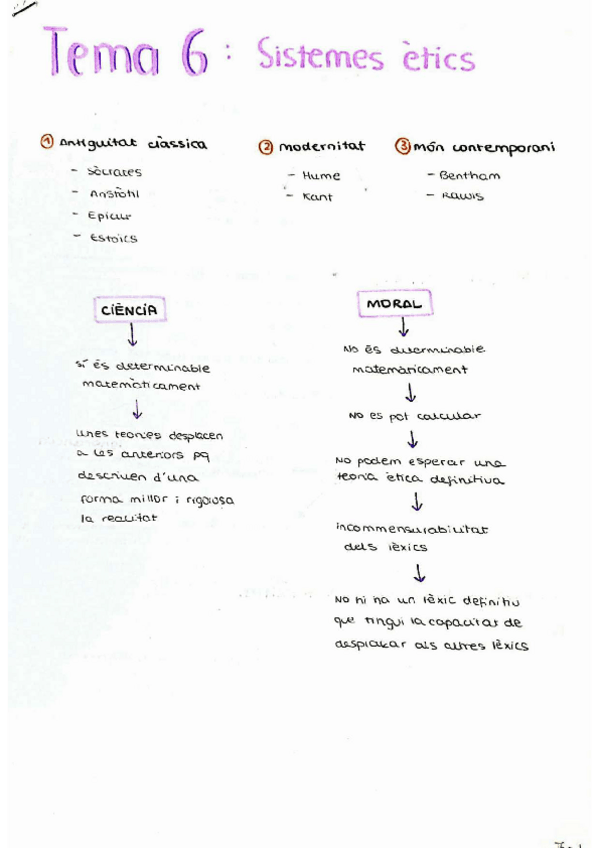 Tema 6: Sistemes ètics
① Antiguitat clàssica
- Sòcrates
- Aristòtil
- Epicur
- Estoics
② Modernitat
- Hume
- Kant
③ Món contemporani
- Bentham
- Rawls
CIÈNCIA
Sí és determinable
matemàticament
unes teories desplacen
a les anteriors pq
descriuen d'una
forma millor i rigorosa
la realitat
MORAL
No és determinable
matemàticament
No es pot calcular
No podem esperar una
teoria ètica definitiva
incommensurabilitat
dels lèxics
No hi ha un lèxic definitiu
que tingui la capacitat de
desplaçar als altres lèxics